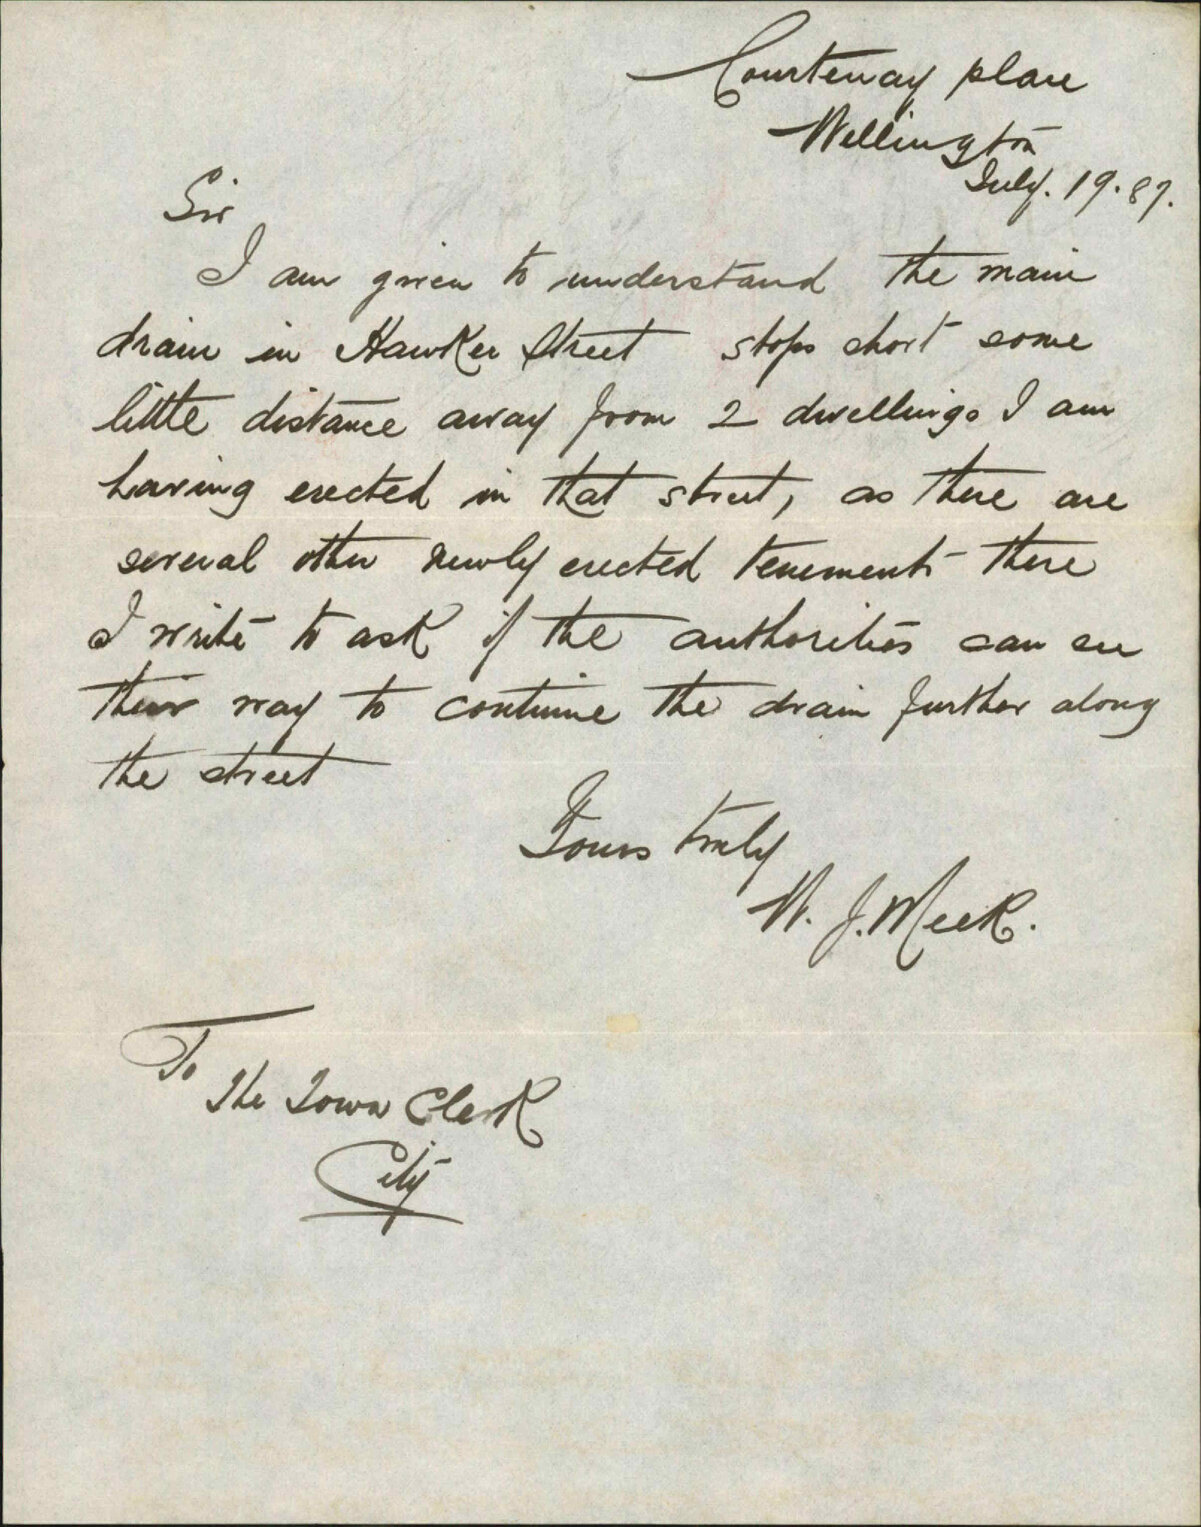 Courtenay place
Wellington
July. 19. 89.
Sir
I am given to understand the main
drain in Hawker Street stops short some
little distance away from 2 dwellings I am
having erected in that street, as there are
several other newly erected tenements there
I write to ask if the authorities can see
their way to continue the drain further along
the street
Yours truly
W. J. Meek.
To
The Town Clerk
City